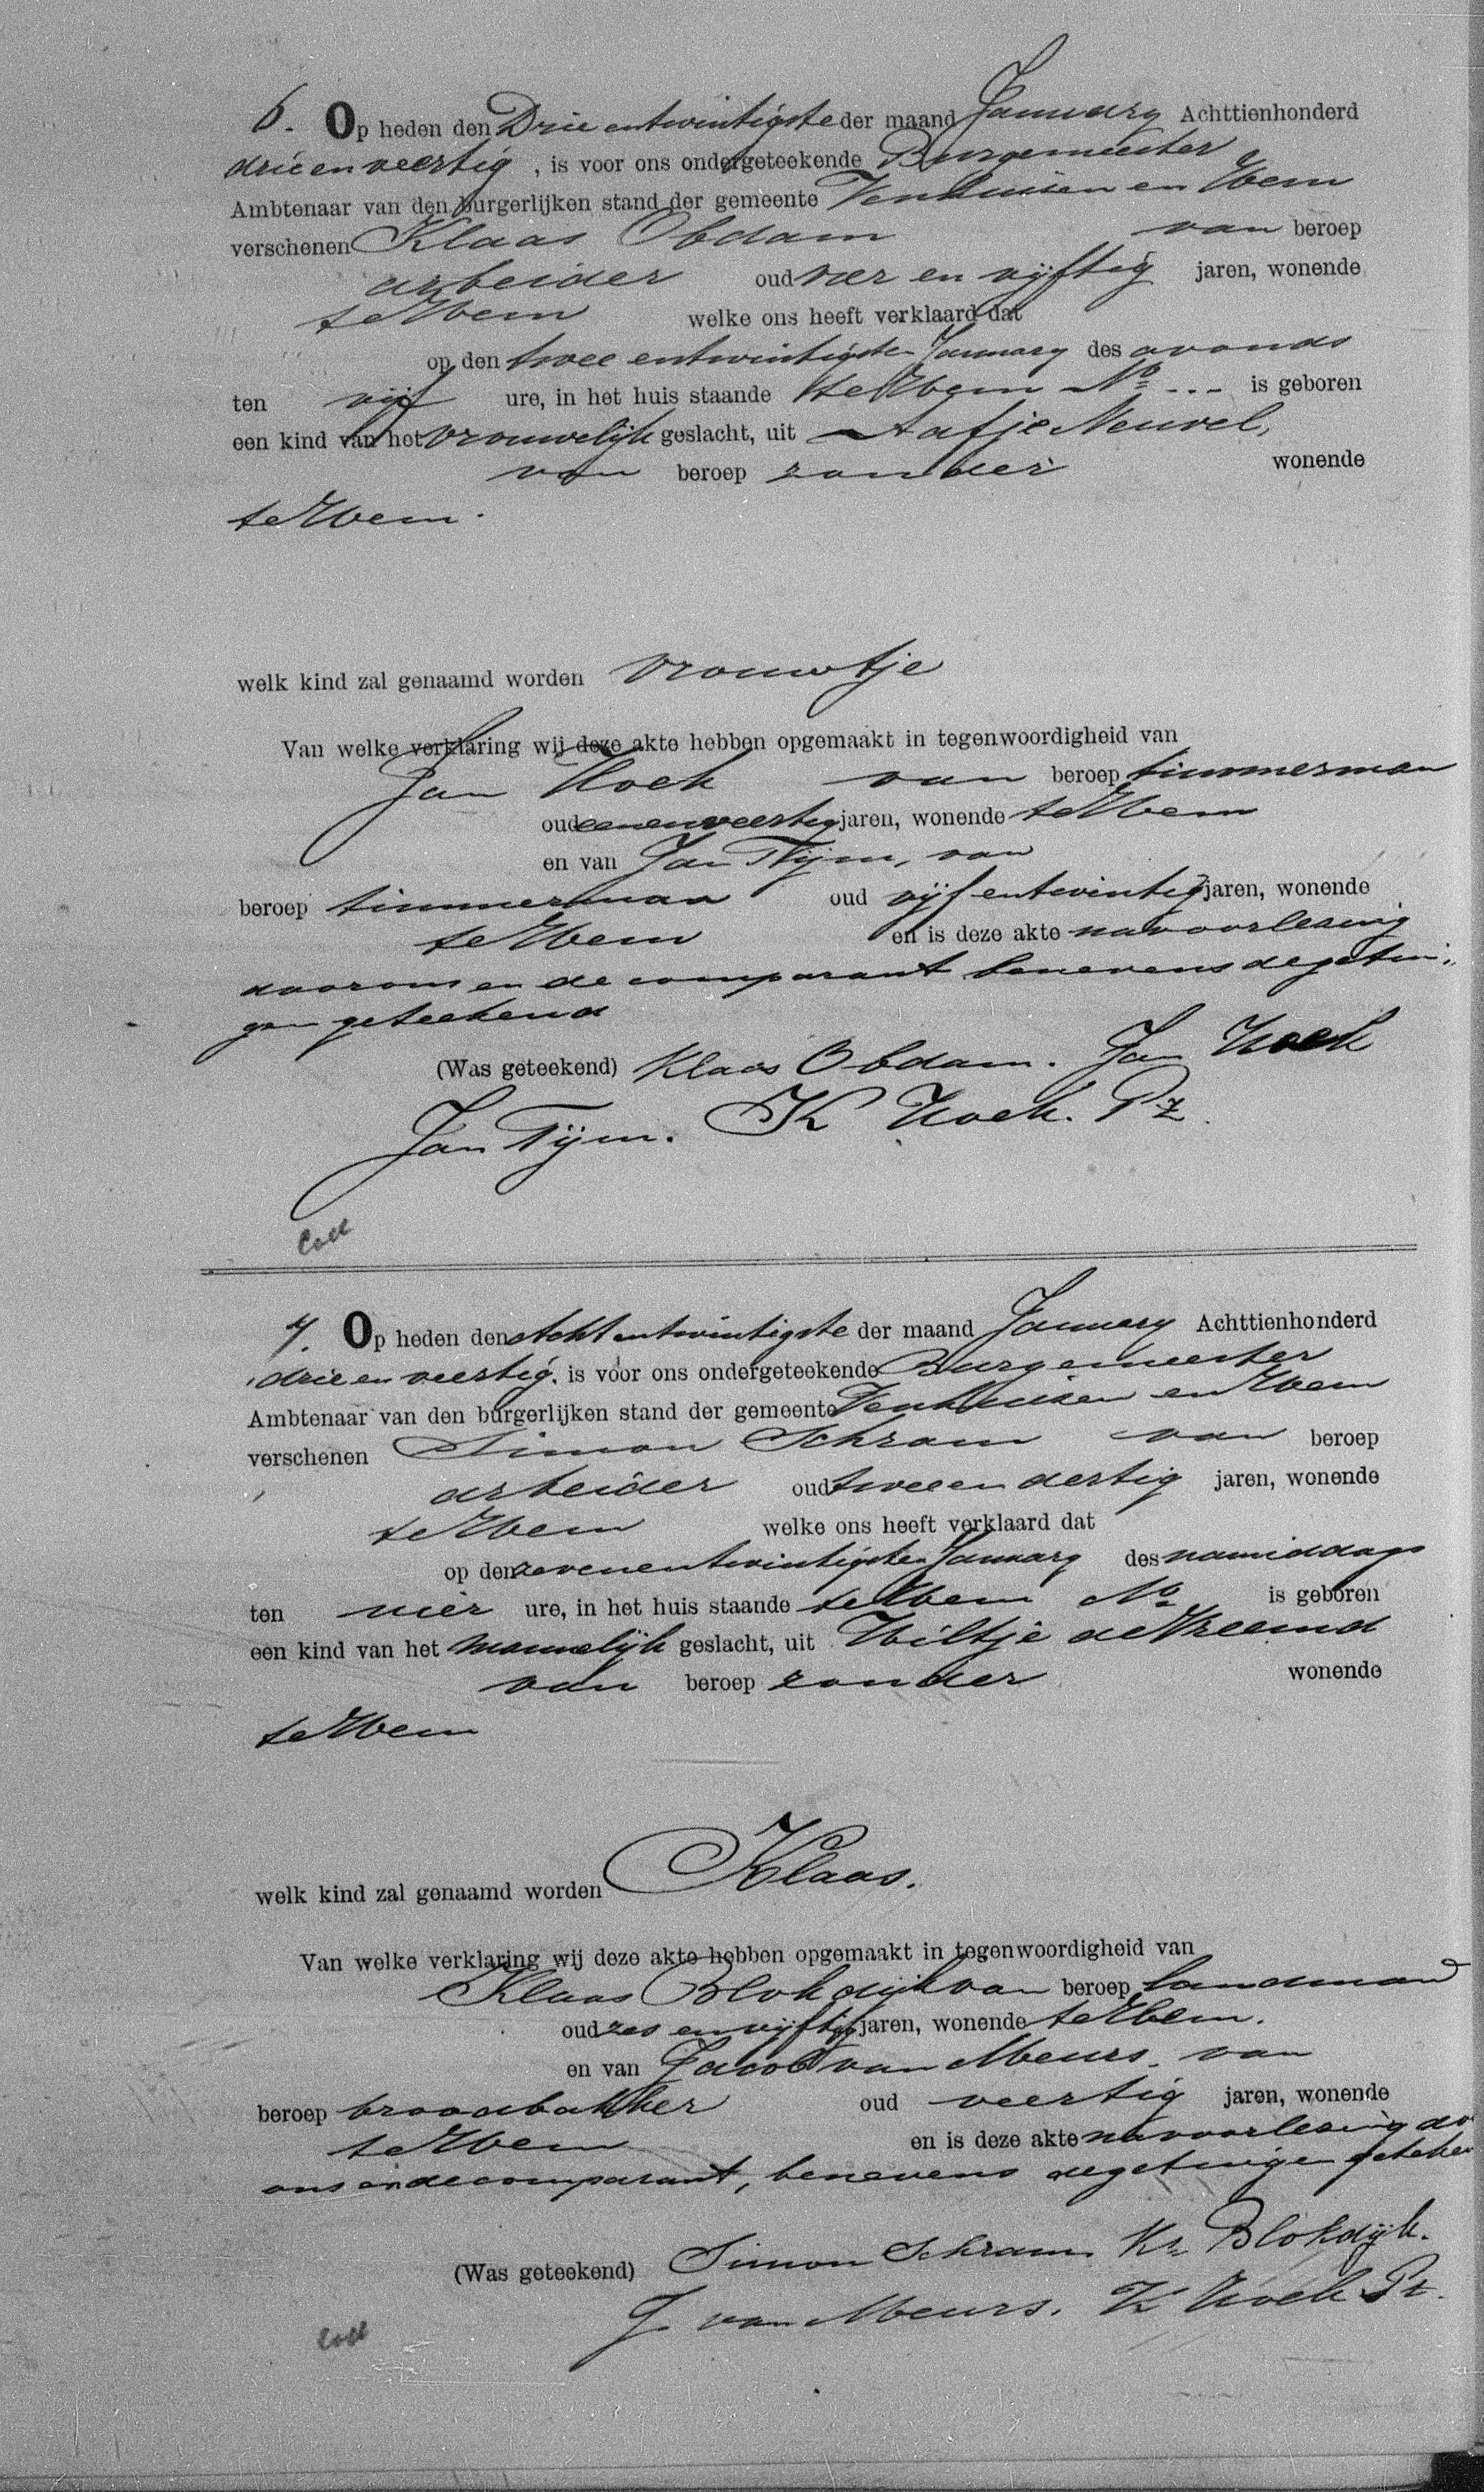 6. Op heden den Drie entwintigste der maand January Achttienhonderd
drie en veertig, is voor ons ondergeteekende Burgemeester
Ambtenaar van den burgerlijken stand der gemeente Venhuisen en Hem
verschenen Klaas Obdam van beroep
arbeider oud vier en vijftig jaren, wonende
te Hem welke ons heeft verklaard dat
op den twee entwintigsten January des avonds
ten vijf ure, in het huis staande te Hem No --- is geboren
een kind van het vrouwelijk geslacht, uit Aafje Neuvel,
van beroep zonder wonende
te Hem.
welk kind zal genaamd worden Vrouwtje
Van welke verklaring wij deze akte hebben opgemaakt in tegenwoordigheid van
Jan Hoek van beroep timmerman
oud eenenveertig jaren, wonende te Hem
en van Jan Tijm, van
beroep timmerman oud vijf entwintig jaren, wonende
te Hem en is deze akte na voorlesing
door ons en de comparant benevens de getui-
gen geteekend
(Was geteekend) Klaas Obdam. Jan Hoek
Jan Tijm. K Hoek. Pz.
Coll
7. Op heden den Acht entwintigste der maand January Achttienhonderd
drie en veertig, is voor ons ondergeteekende Burgemeester
Ambtenaar van den burgerlijken stand der gemeente Venhuisen en Hem
verschenen Simon Schram van beroep
arbeider oud twee en dertig jaren, wonende
te Hem welke ons heeft verklaard dat
op den zevenentwintigsten January des namiddags
ten vier ure, in het huis staande te Hem No is geboren
een kind van het mannelijk geslacht, uit Wiltje de Vreemd
van beroep zonder wonende
te Hem
welk kind zal genaamd worden Klaas.
Van welke verklaring wij deze akte hebben opgemaakt in tegenwoordigheid van
Klaas Blokdijk van beroep landman
oud zes en vijftig jaren, wonende te Hem.
en van Jacob van Meurs van
beroep broodbakker oud veertig jaren, wonende
te Hem en is deze akte na voorlesing do
ons en de comparant, benevens de getuigen geteken
(Was geteekend) Simon Schram Ks Blokdijk.
J. van Meurs. K Hoek Pz.
Coll